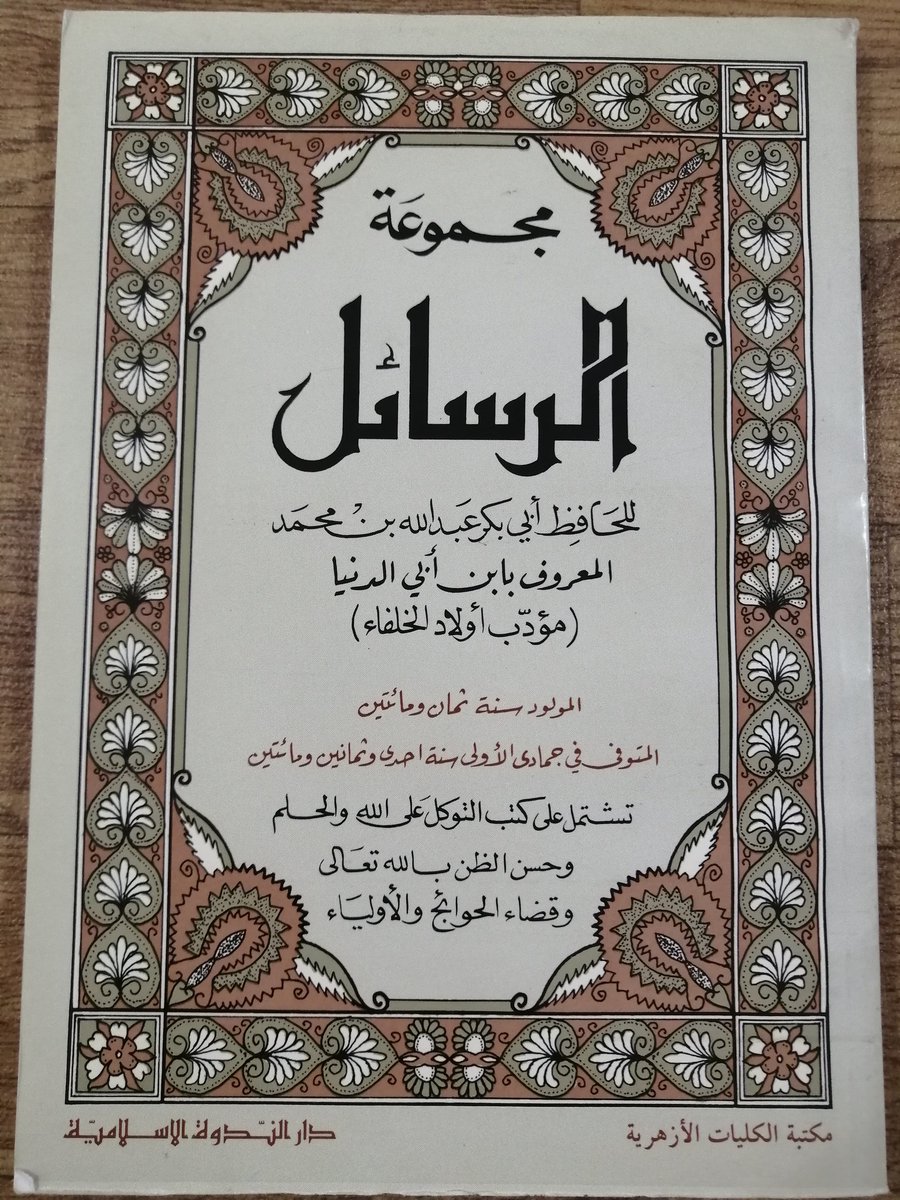 مجموعَة
الرسائل
للحَافِظ أبي بكر عَبد الله بنْ محمَد
المعروف بابن أبي الدنيا
(مؤدّب أولاد الخلفاء)
المولود سنة ثمان ومائتين
المتوفى في جمادى الأولى سنة احدى وثمانين ومائتين
تشتمل على كتب التوكل عَلى الله والحلم
وحسن الظن بالله تعَالى
وقضاء الحوائج والأوليَاء
مكتبة الكليات الأزهرية
دار النّدوة الاسلاميّة